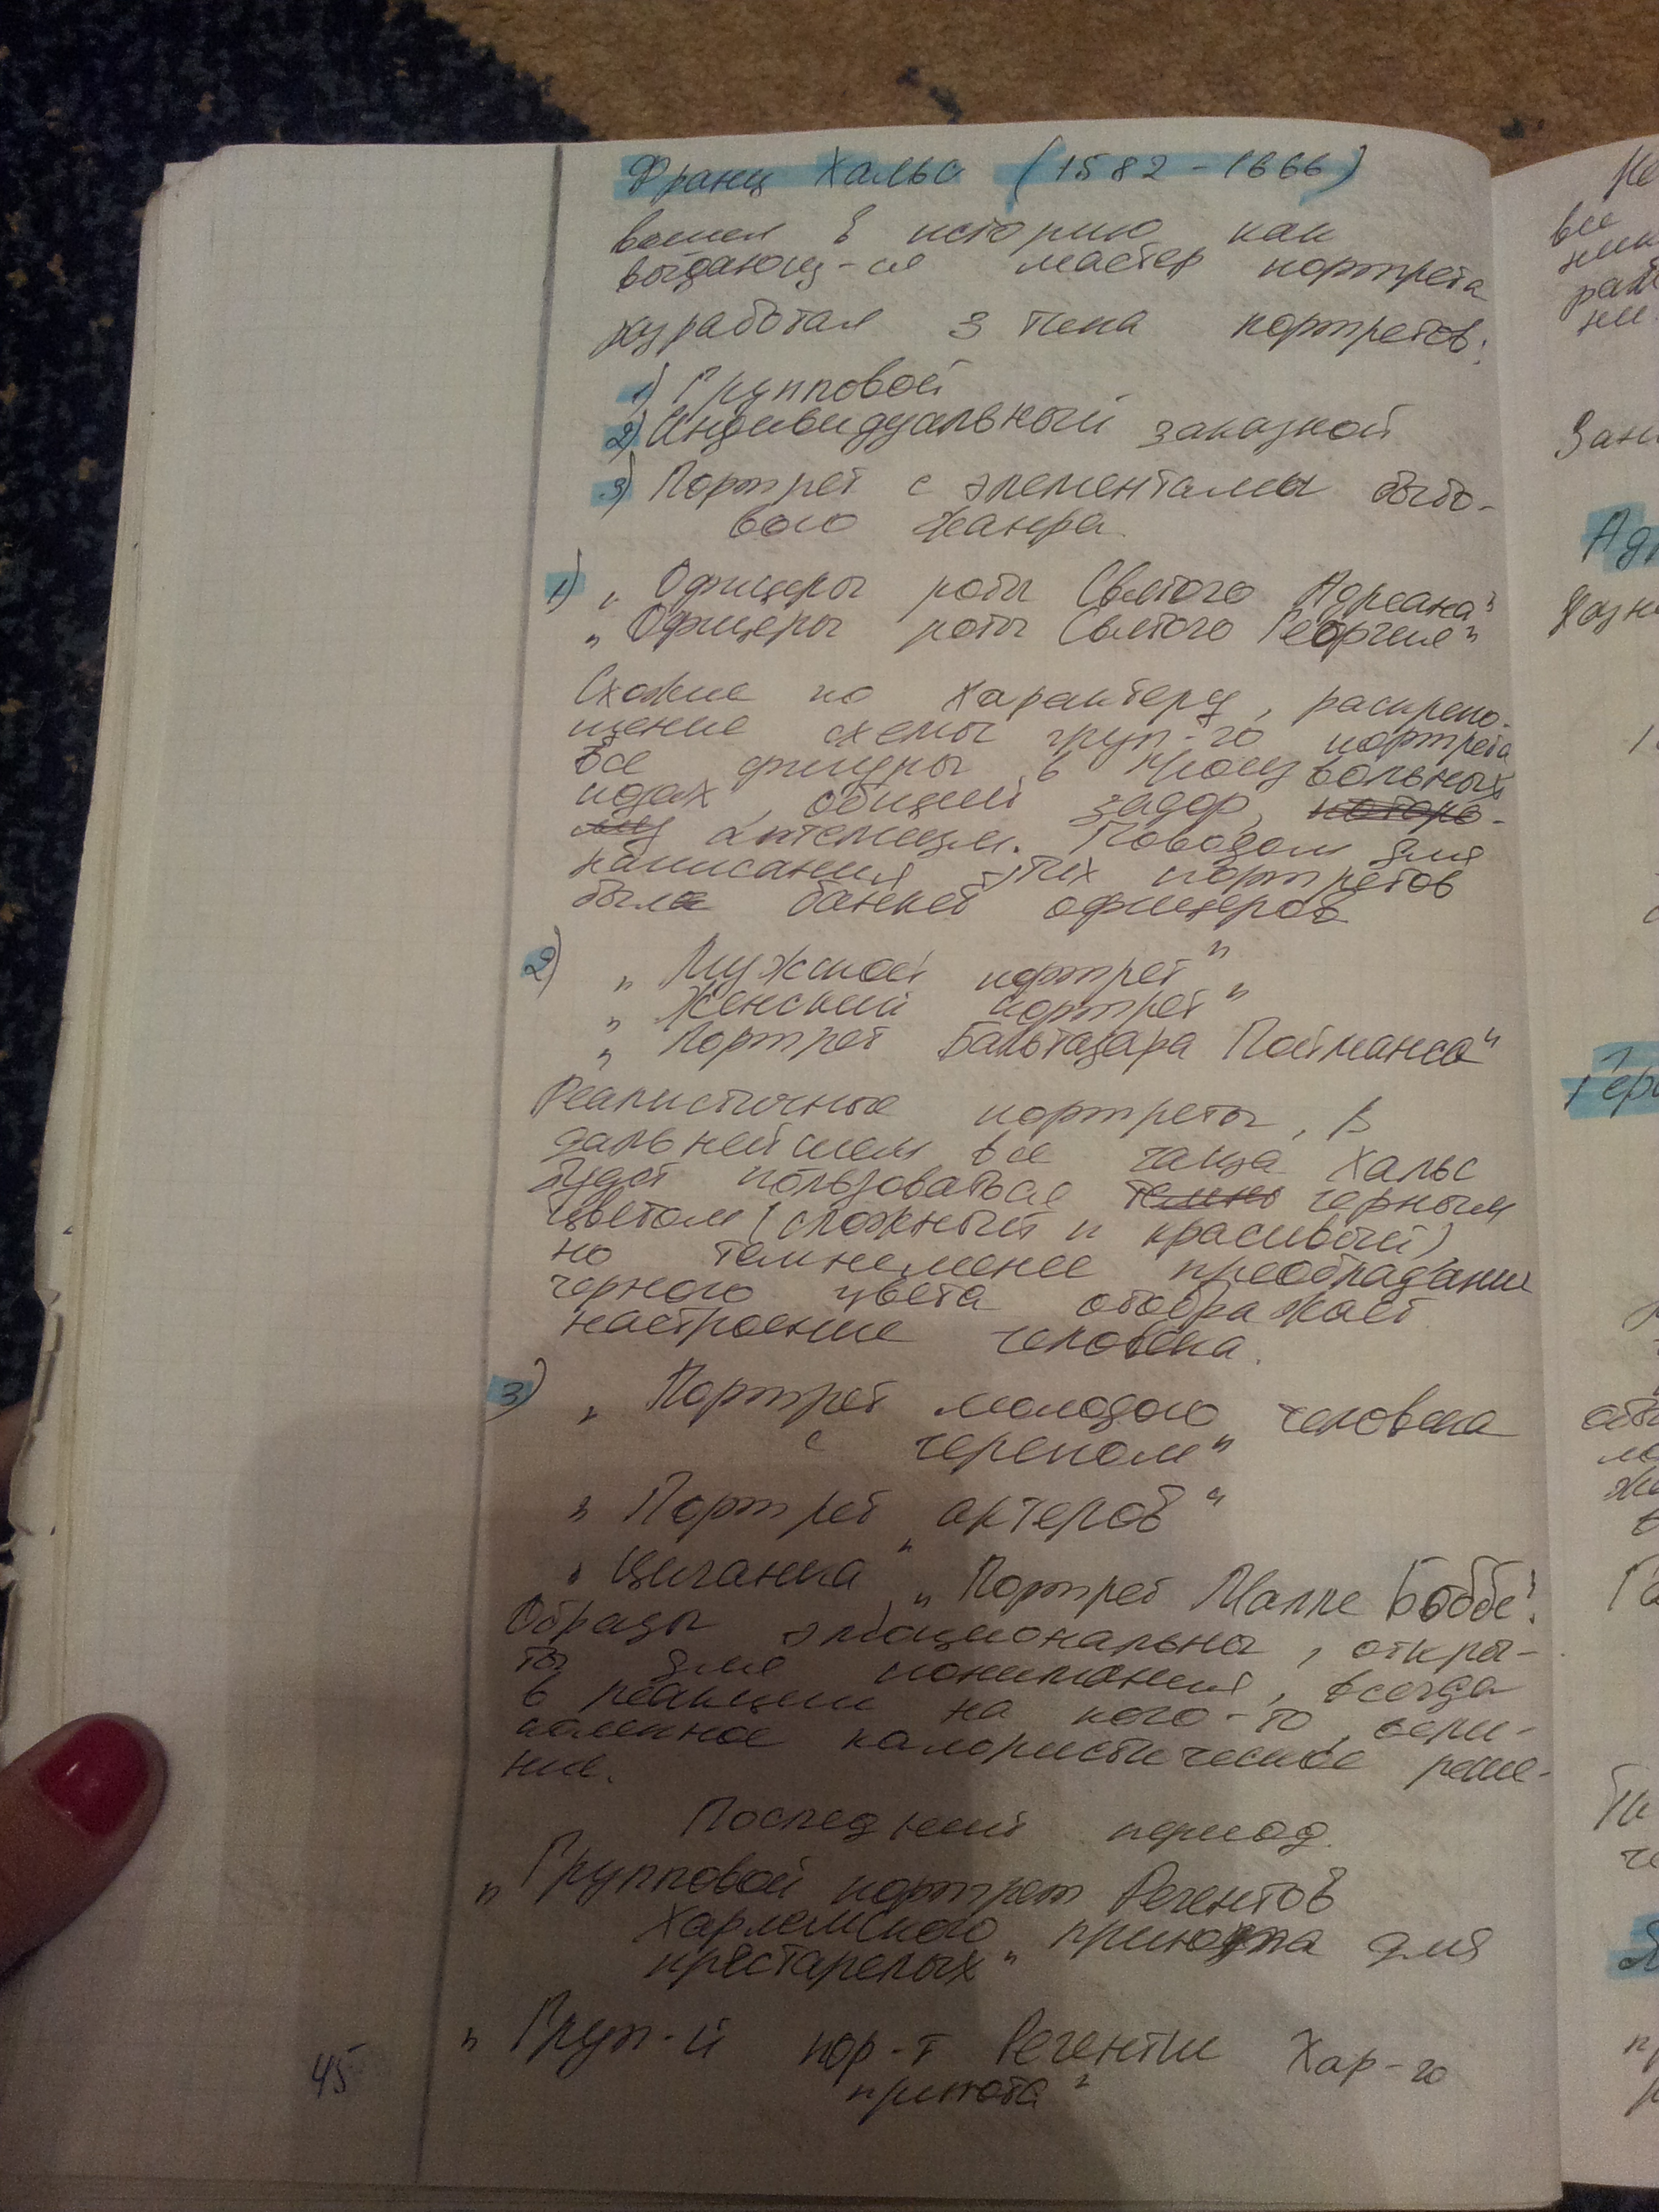 Франц Хальс (1582-1666)
вошел в историю как
выдающ-ся мастер портрета
разработал 3 типа портретов:
1) Групповой
2) Индивидуальный заказной
3) Портрет с элементами быто-
вого жанра.
1) „Офицеры роты Святого Адреана"
„Офицеры роты Святого Георгия"
Схожие по характеру, раскрепо-
щение схемы груп-го портрета
Все фигуры в произвольных
позах, общий задор,
антемизм. Поводом для
написания этих портретов
был банкет офицеров
2) „Мужской портрет"
„Женский портрет"
„Портрет Бальтазара Пойманса"
Реалистичные портреты, в
дальнейшем все чаще Хальс
будет пользоваться черным
цветом (сложный и красивый)
но темнеменее преобладание
черного цвета отображает
настроение человека.
3) „Портрет молодого человека
с черепом"
„Портрет актеров"
„Цыганка" „Портрет Малле Боббе".
Образы эмоциональны, откры-
ты для понимания, всегда
в реакции на кого-то,
колористическое реше-
ние.
Последний период.
„Групповой портрет Регентов
Харлемского приюта для
престарелых"
„Груп-й пор-т Регентш Хар-го
приюта"
45
Зани
Ад
Гер